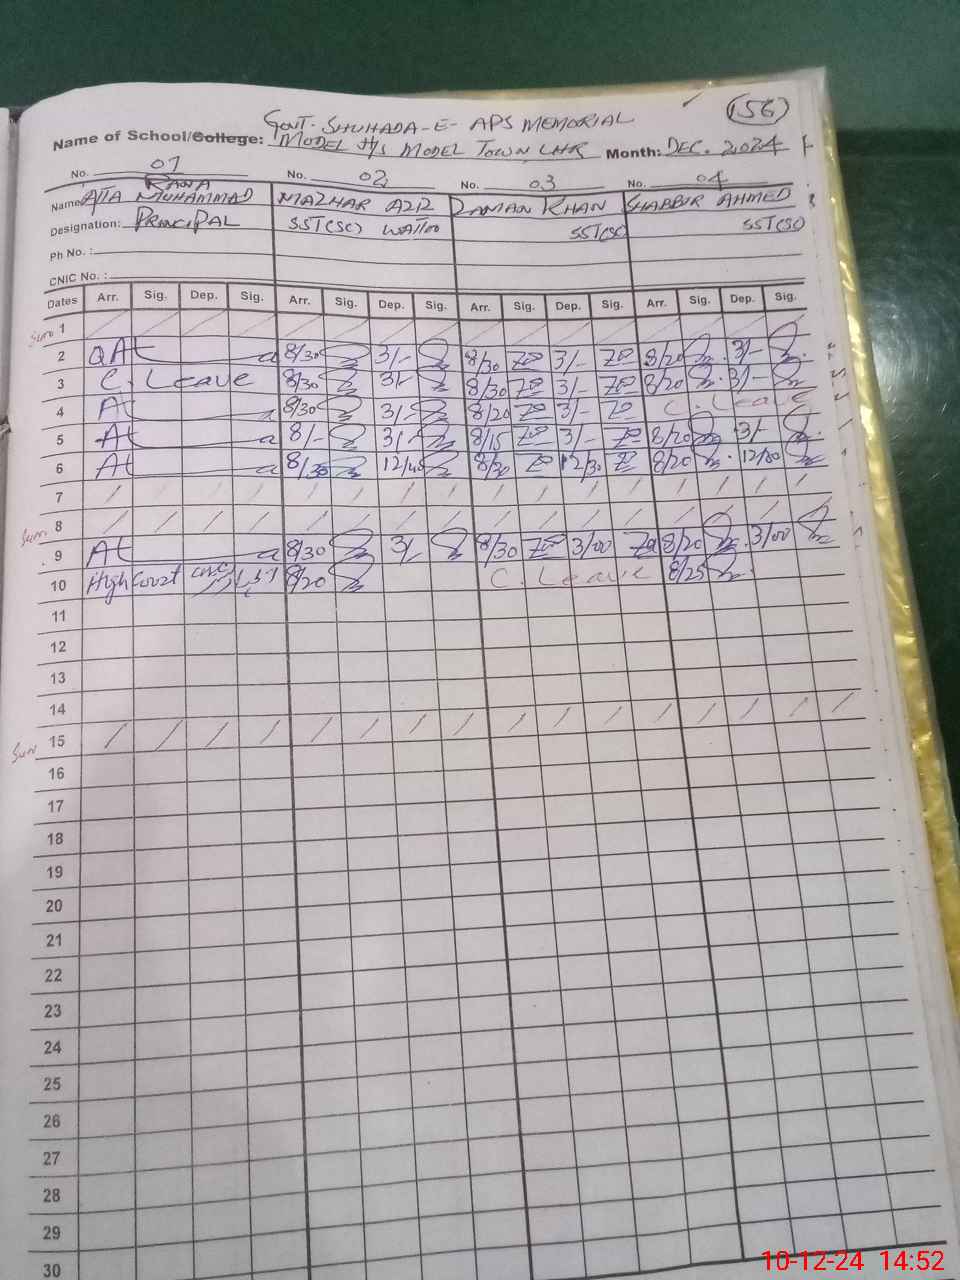 (56)
GOVT. SHUHADA-E-APS MEMORIAL
Name of School/College: MODEL H/S MODEL TOWN LHR Month: DEC. 2024
No. 01 No. 02 No. 03 No. 04
RANA
Name ATTA MUHAMMAD MAZHAR AZIZ ZAMAN KHAN SHABBIR AHMED
Designation: PRINCIPAL SST(SC) SST(SC) SST(SC)
Ph No.:
CNIC No. :
Dates Arr. Sig. Dep. Sig. Arr. Sig. Dep. Sig. Arr. Sig. Dep. Sig. Arr. Sig. Dep. Sig.
Sun 1
2 8/30 3/- 8/30 3/- 8/20 3/-
3 C. Leave 8/30 3/- 8/30 3/- 8/20 3/-
4 8/30 3/- 8/20 3/- C. Leave
5 8/- 3/- 8/15 3/- 8/20 3/-
6 8/30 12/45 8/30 12/30 8/20 12/30
7
Sun 8
9 8/30 3/- 8/30 3/00 8/20 3/00
10 High Court 8/20 C. Leave 8/25
11
12
13
14
Sun 15
16
17
18
19
20
21
22
23
24
25
26
27
28
29
30
10-12-24 14:52